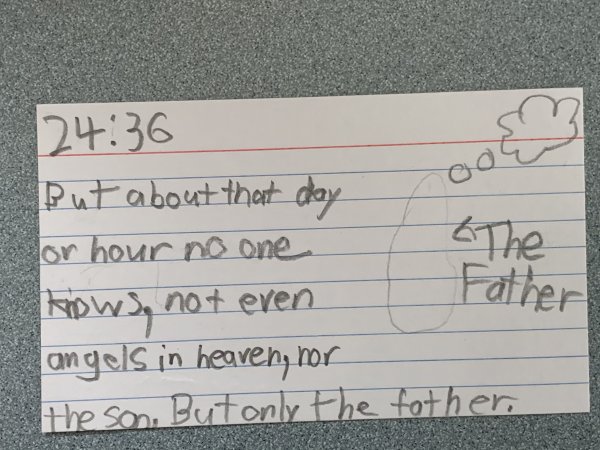 24:36
But about that day
or hour no one
knows, not even
angels in heaven, nor
the son. But only the father.
The
Father